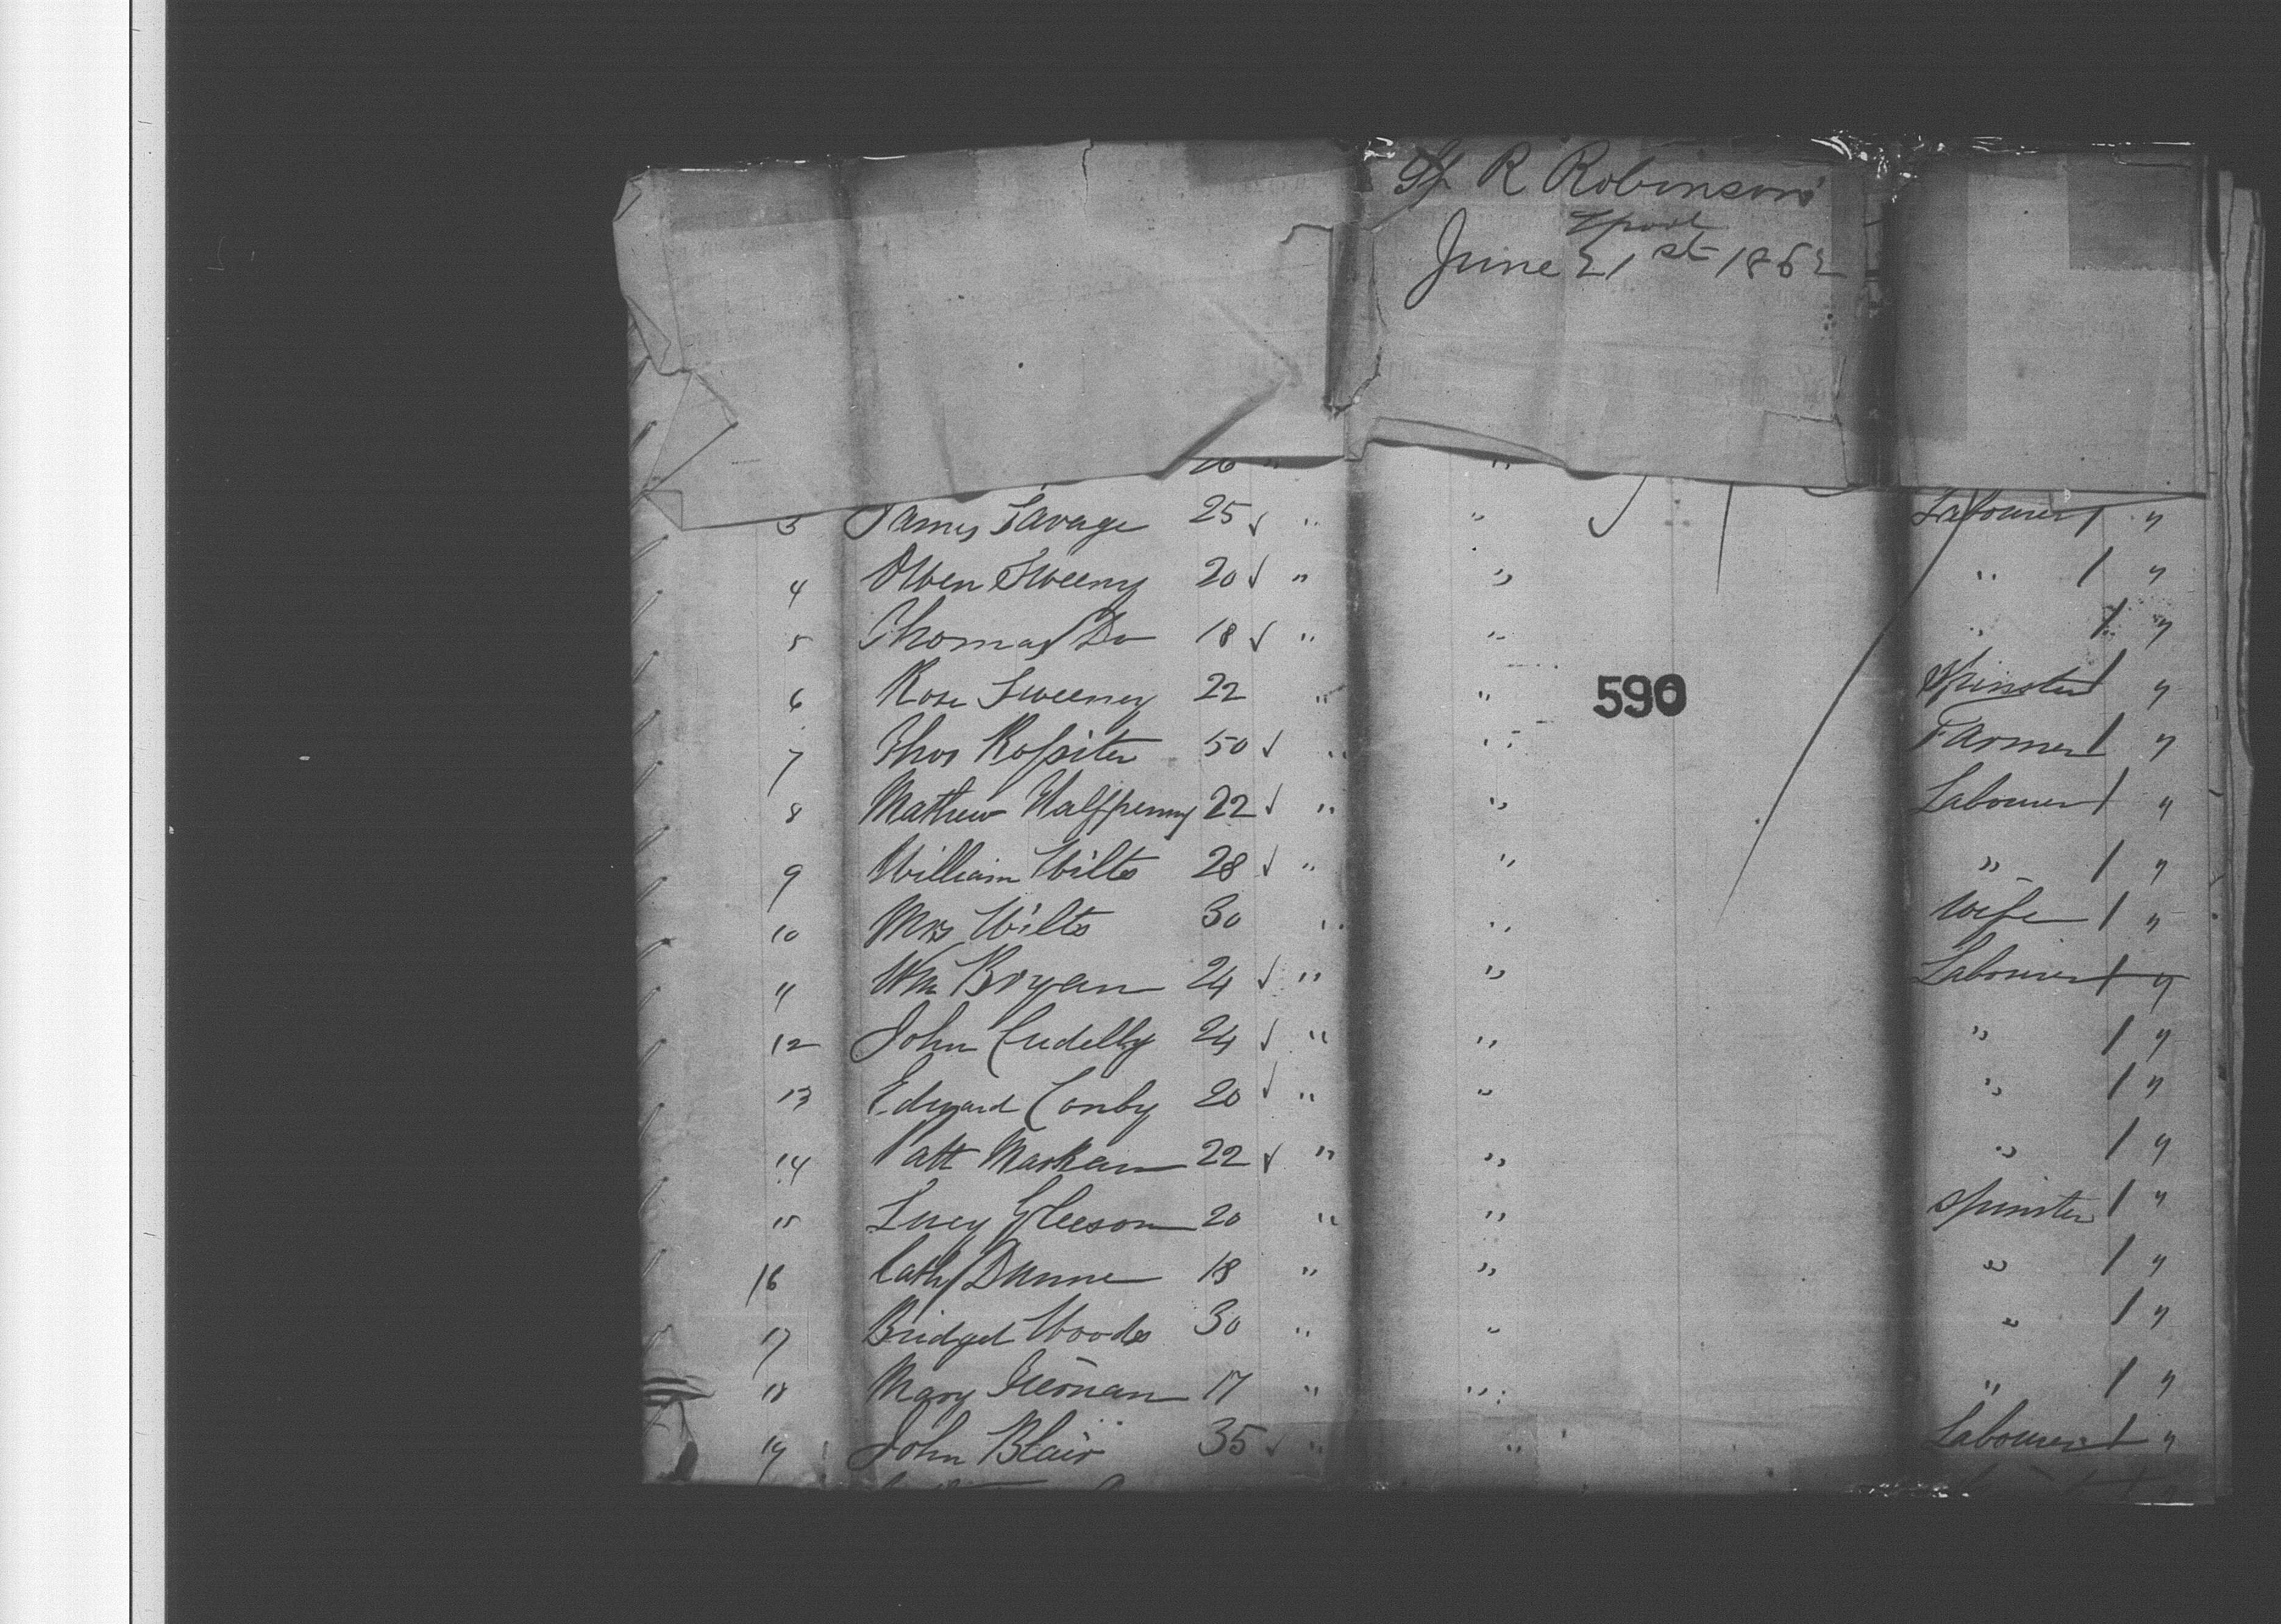 R Robinson
Lpool
June 21st 1862
3 James Savage 25 ✓ " " Labourer / "
4 Owen Sweeny 20 ✓ " " " / "
5 Thomas Do 18 ✓ " " " / "
590
6 Rose Sweeney 22 " " Spinster / "
7 Thos Rossiter 50 ✓ " " Farmer / "
8 Mathew Halfpenny 22 ✓ " " Labourer / "
9 William Wilts 28 ✓ " " " / "
10 Mrs Wilts 30 " " Wife / "
11 Wm Bryan 24 ✓ " " Labourer / "
12 John 24 ✓ " " " / "
13 Edward Conby 20 ✓ " " " / "
14 Patt Markam 22 ✓ " " " / "
15 Lucy Gleeson 20 " " Spinster / "
16 Cath Dunne 18 " " " / "
17 Bridget Woods 30 " " " / "
18 Mary 17 " " " / "
19 John Blair 35 ✓ " " Labourer / "